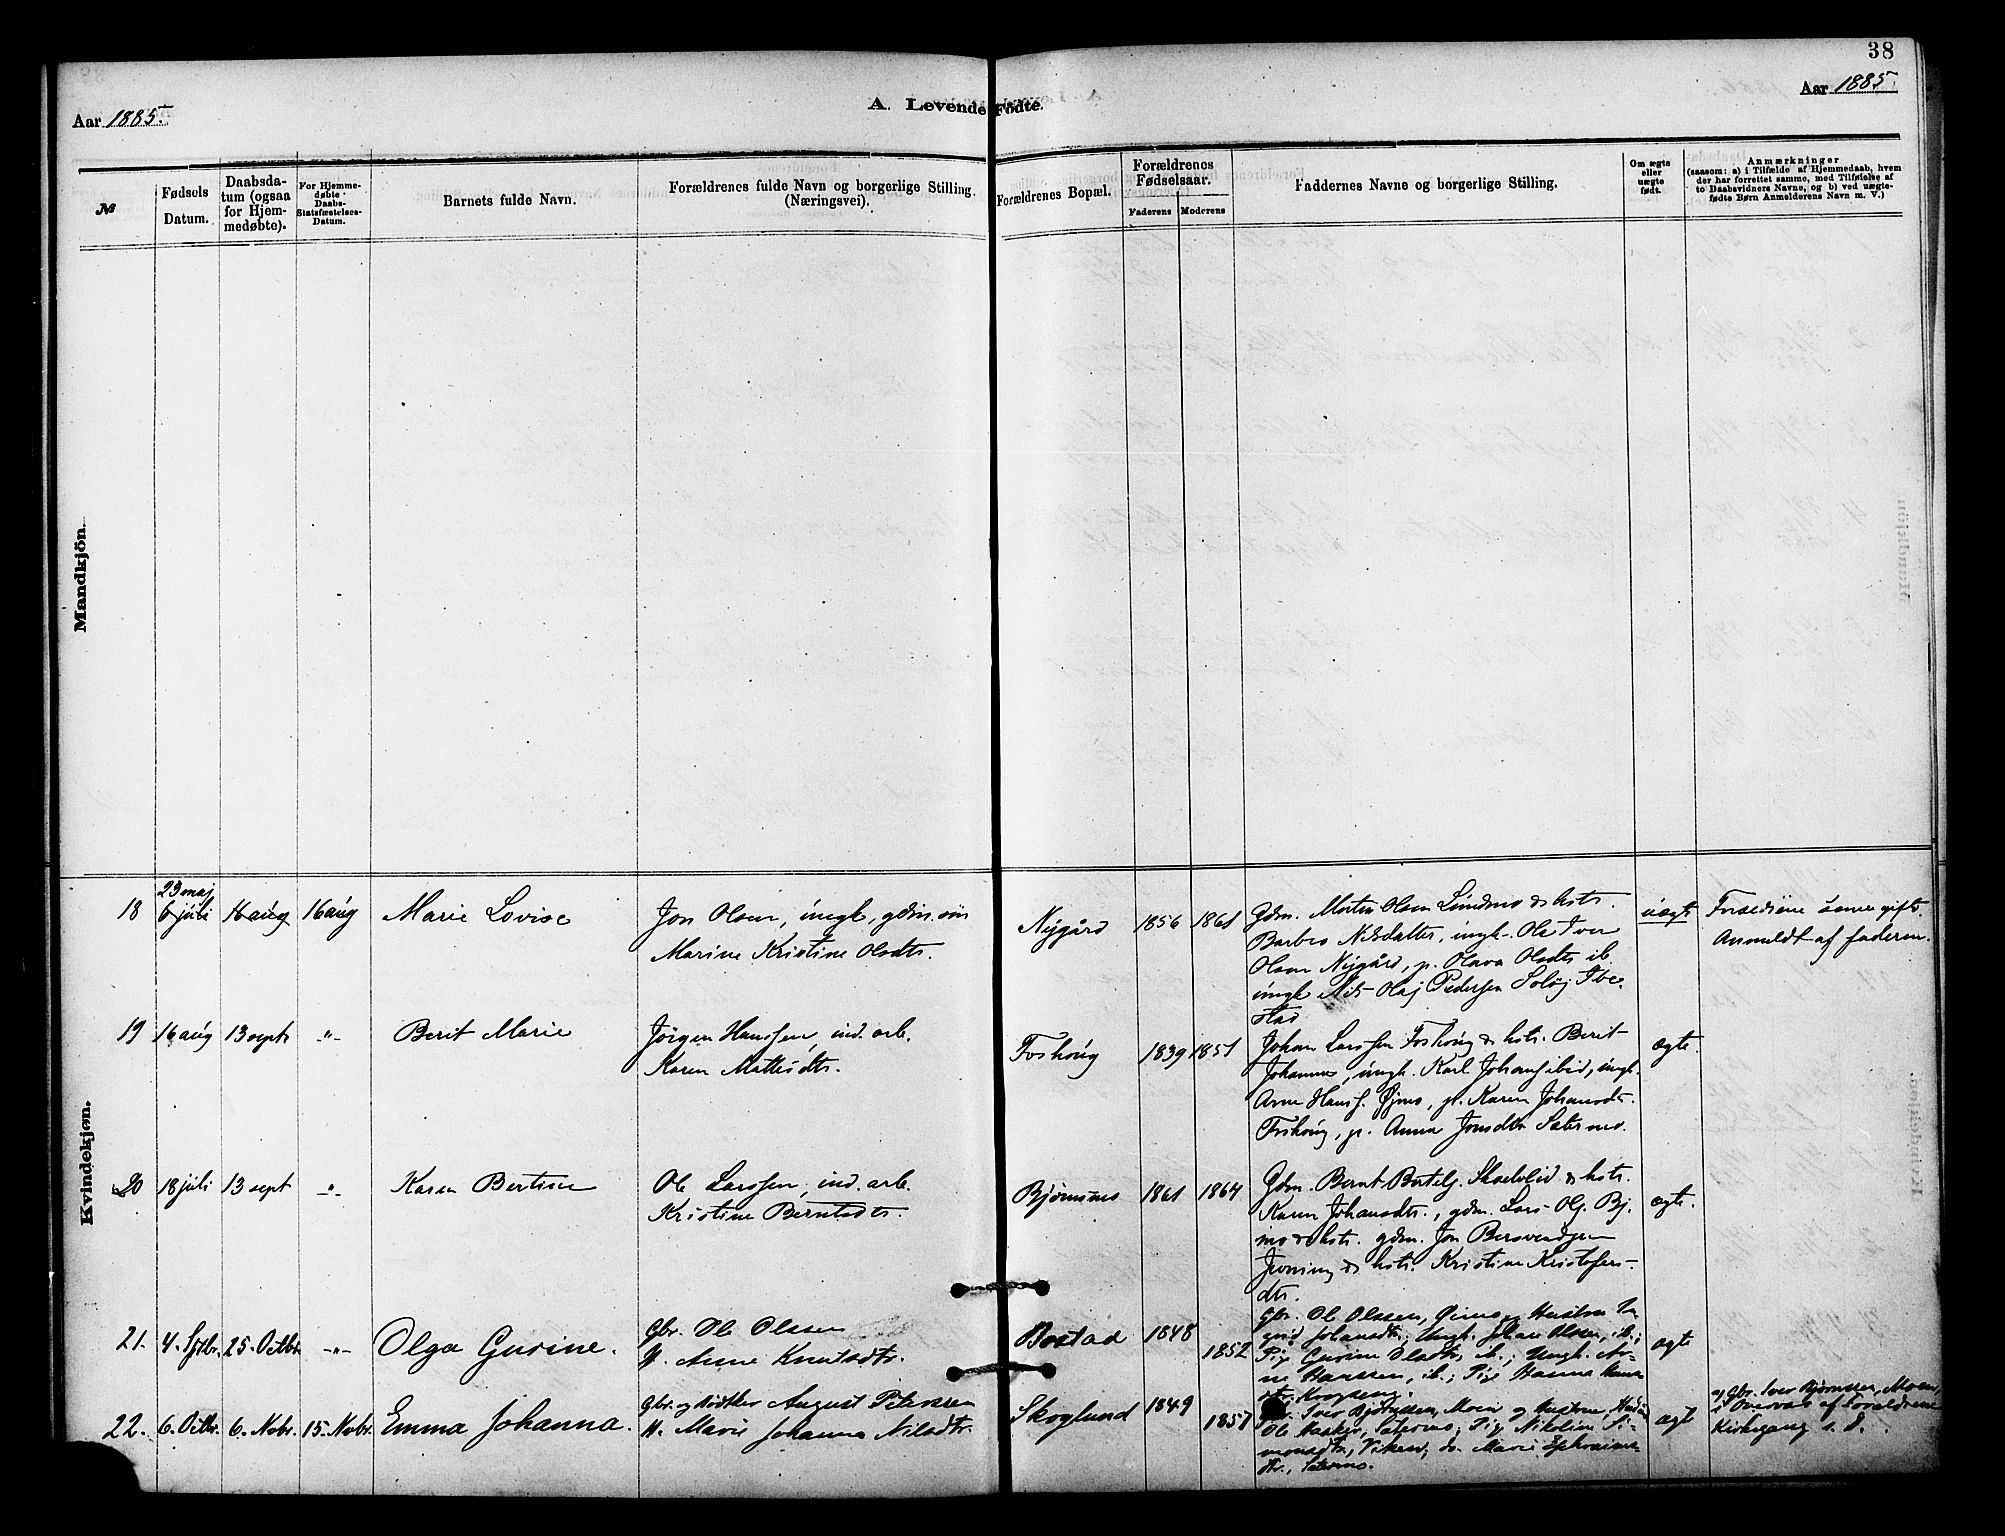 38
Aar 1885.
A. Levende Fødte.
Aar 1885.
№
Fødsels Datum.
Daabsda-
tum (ogsaa
for Hjem-
medøbte).
For Hjemme-
døbte
Daabs-
Statsfæstelses-
Datum.
Barnets fulde Navn.
Forældrenes fulde Navn og borgerlige Stilling.
(Næringsvei).
Forældrenes Bopæl.
Forældrenes
Fødselsaar.
Faderens Moderens
Faddernes Navne og borgerlige Stilling.
Om ægte
eller
uægte
født.
Anmærkninger
(saasom: a) i Tilfælde af Hjemmedaab, hvem
der har forrettet samme, med Tilføielse af
to Daabsvidners Navne, og b) ved uægte-
fødte Børn Anmelderens Navn m. V.)
Mandkjön.
Kvindekjøn.
18 23 maj 6 juli 16 aug 16 aug Marie Lovise
Jon Olsen, ungk, gdm. søn
Marine Kristine Olsdtr.
Nygård 1856 1861
Gdm. Morten Olsen Lundmo & hstr.
Barbro Nilsdatter, ungk. Ole Iver
Olsen Nygård, p. Olava Olsdtr ib.
ungk Nils Olaj Pedersen Soløj Ibe-
stad
uægte
Forældrene senere gift.
Anmeldt af faderen.
19 16 aug 13 sept -"- Berit Marie
Jørgen Hanssen, ind. arb.
Karen Mattisdtr.
Foshoug 1839 1851
Johan Larssen Foshoug & hstr. Berit
Johannes, ungk. Karl Johans ibid, ungk.
Arne Hanss. Øjmo, p. Karen Johansdtr.
Foshoug, p. Anna Jonsdtr Sætermo.
ægte.
20 18 juli 13 sept -"- Karen Bertine
Ole Larssen, ind. arb.
Kristine Berntsdtr.
Bjørnsmo 1861 1864
Gdm. Bernt Bertilj. Skoelvlid & hstr.
Karen Johansdtr., gdm. Lars Olj. Bj.
mo & hstr. gdm. Jon Bersvendsen
& hstr. Kristine Kristofers-
dtr.
ægte.
21. 4. Sptbr. 25. Octbr. -"- Olga Gurine.
Gbr. Ole Olssen
H. Anne Knutsdtr.
Bostad 1848 1852
Gbr. Ole Olssen, Øimo, Hustru In-
grid Johansdtr.; Ungk. Johan Olssen, ib.;
Pige Gurine Olsdtr, ib.; Ungk. Ar-
ne Hanssen, ib.; Pige Hanna Hans-
dtr.
ægte
22. 6. Octbr. 6. Novbr. 15. Novbr. Emma Johanna.
Gbr. og Rødtler August Peterssen
H. Marie Johanna Nilsdtr.
Skoglund 1849 1857
Gbr. Iver Bjørnssen, Moen og Hustru,
Ole Haakjer, Sætermo; Pige Nikoline Si-
monsdtr., Viken; do. Marie Ephraims-
dtr., Sætermo.
ægte
af Gbr. Iver Bjørnssen, Moen,
i Overvær af Forældrene
Kirkegang s. D.